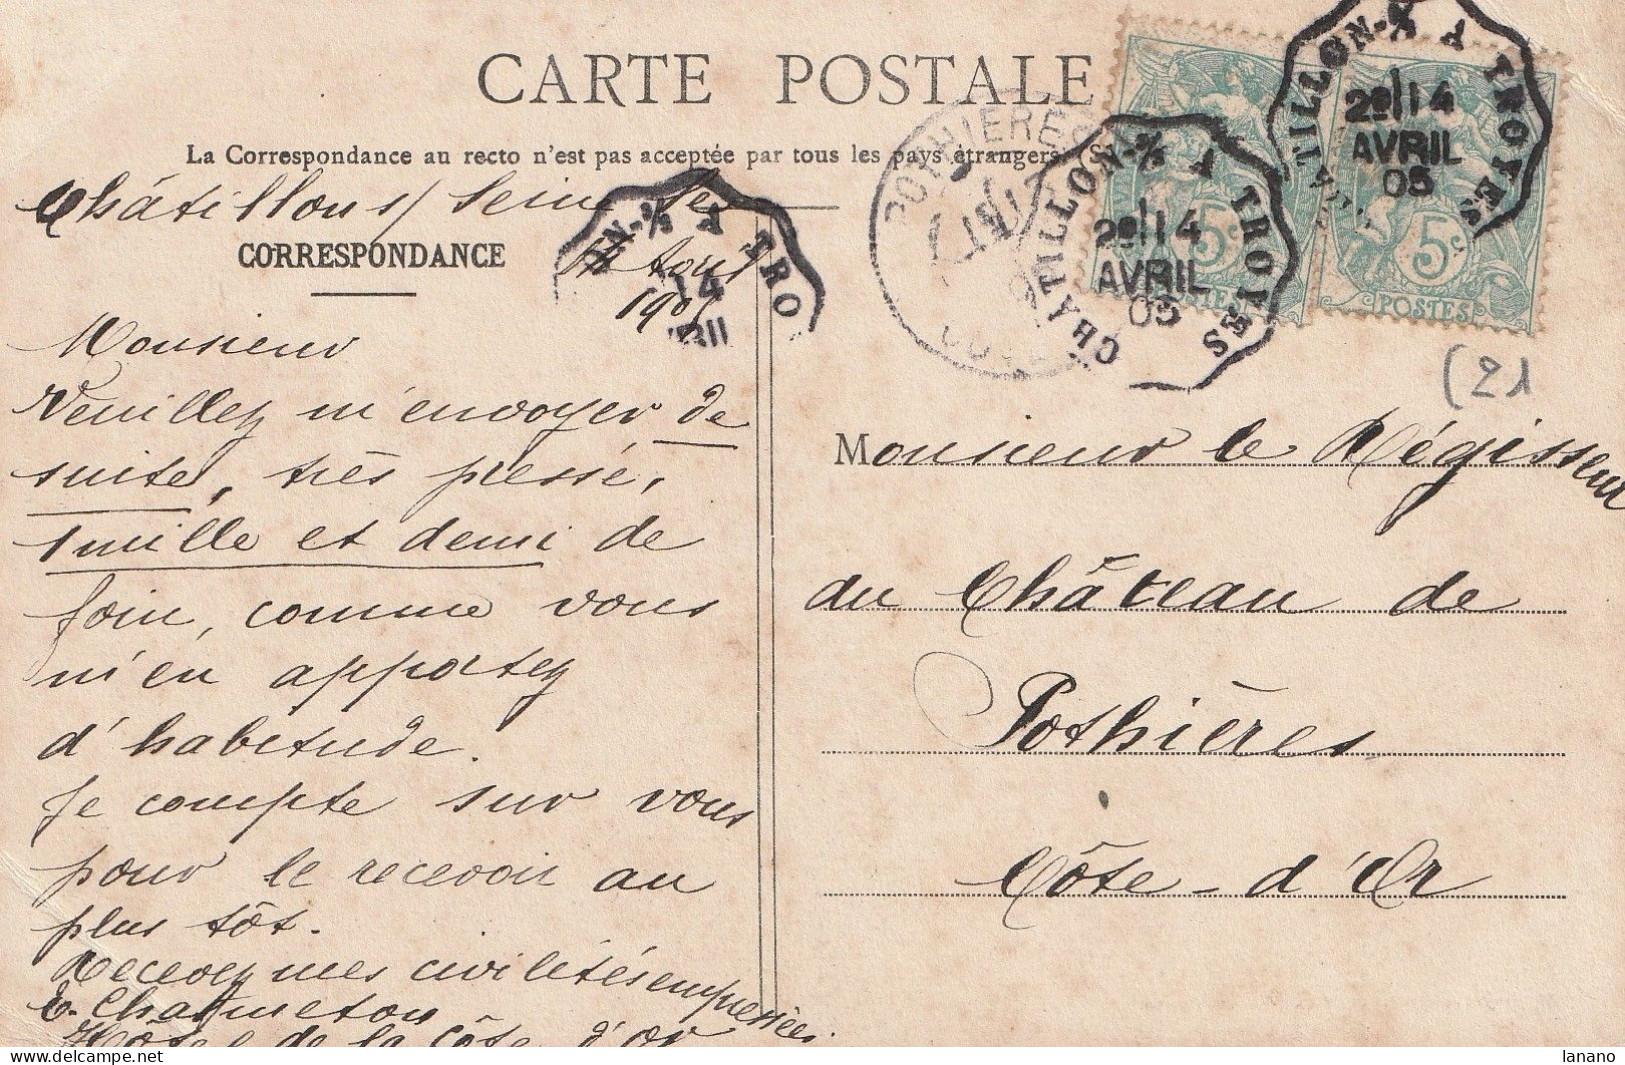 CARTE POSTALE
La Correspondance au recto n'est pas acceptée par tous les pays étrangers
Châtillon s/ Seine le
CORRESPONDANCE
14 Avril
1905
Monsieur
Veuillez m'envoyer de
suite, très pressé,
1 mille et demi de
foin, comme vous
m'en apportez
d'habitude.
Je compte sur vous
pour le recevoir au
plus tôt.
Recevez mes civilités empressées.
E. Charmeton
Hôtel de la Côte d'Or
N-S/S A TRO
14
POTHIERES
CHATILLON-S/S A TROYES
2º 14
AVRIL
05
5c
POSTES
TILLON-S/S A TROYES
2º 14
AVRIL
05
5c
POSTES
(21
Monsieur le Régisseur
du Château de
Pothières
Côte-d'Or
lanano
delcampe.net